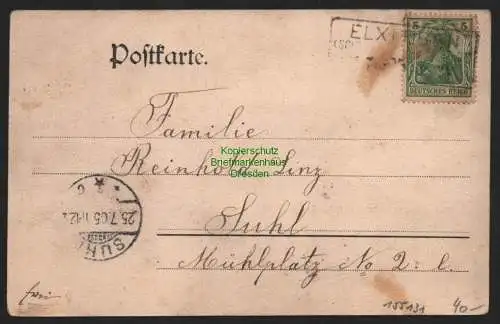 ELX
5 5
Postkarte.
DEUTSCHES REICH
Familie
Kopierschutz
Reinhold Linz
Briefmarkenhaus
Dresden
Suhl
25.7.05
SUHL
Mühlplatz No 2. l.
frei
155131
40-